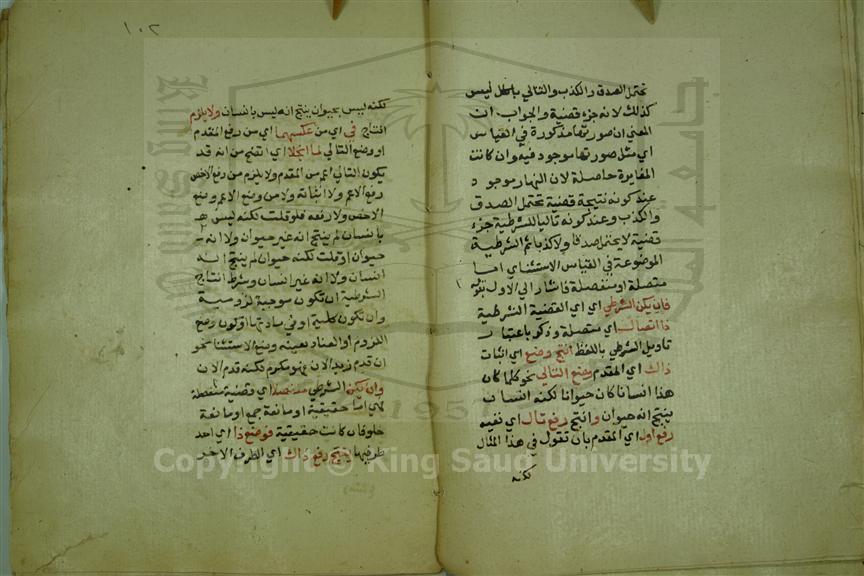 تحتمل الصدق والكذب والتالي باطل ليس
كذلك لانه جزء قضية والجواب ان
المعنى ان صورتها مذكورة في القياس
اي مثل صورتها موجود فيه وان كانت
المغايرة حاصلة لان النهار موجود
عند كونه نتيجة قضية تحتمل الصدق
والكذب وعند كونه تاليا للشرطية جزء
قضية لا يحتمل صدقا ولا كذبا ثم الشرطية
الموضوعة في القياس الاستثناي اما
متصلة او منفصلة فاشار الي الاول بقوله
فان يكن الشرطي اي اي القضية الشرطية
ذا اتصال اي متصلة وذكر باعتبار
تاويل الشرطي باللفظ انتج وضع اي اثبات
ذاك اي المقدم وضع التالي نحو كلما كان
هذا انسانا كان حيوانا لكنه انسان
ينتج انه حيوان وانتج رفع تال اي نفيه
رفع اول اي المقدم بان تقول في هذا المثال
لكنه
١٠٢
لكنه ليس بحيوان ينتج انه ليس بانسان ولا يلزم
انتاج في اي من عكسهما اي من رفع المقدم
او وضع التالي لما انجلا اي اتضح من انه قد
يكون التالي اعم من المقدم ولا يلزم من رفع الاخص
رفع الاعم ولا اثباته ولا من وضع الاعم وضع
الاخص ولا رفعه فلو قلت لكنه ليس
بانسان لم ينتج انه غير حيوان ولا انه
حيوان او قلت لكنه حيوان لم ينتج انه
انسان ولا انه غير انسان وشرط انتاج
الشرطية ان تكون موجبة لزومية
وان تكون كلية او في مادتها او تكون وضع
اللزوم او العناد بعينه وضع الاستثنا نحو
ان قدم زيد الان فهو مكرم لكنه قدم الان
وان يكن الشرطي منفصلا اي قضية منفصلة
فهي اما حقيقية او مانعة جمع او مانعة
خلو فان كانت حقيقية فوضع ذا اي احد
طرفيها ينتج رفع ذاك اي الطرف الاخر
Copyright © King Saud University
1957